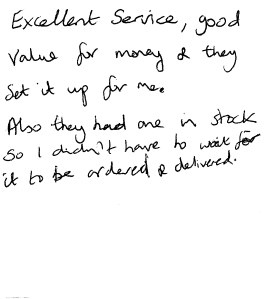 Excellent Service, good
value for money & they
set it up for me.
Also they had one in stock
so I didn't have to wait for
it to be ordered & delivered.